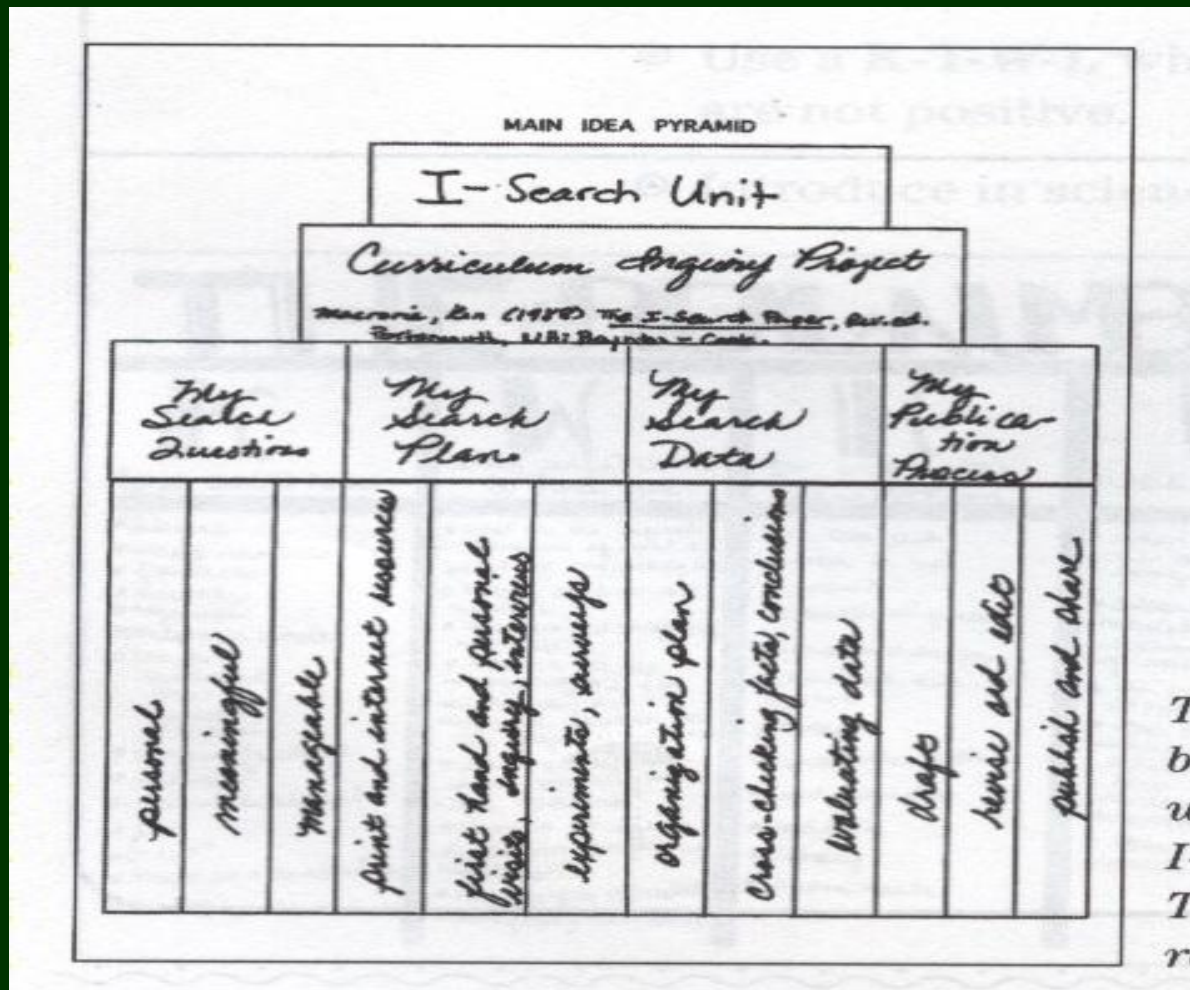 MAIN IDEA PYRAMID
I-Search Unit
Curriculum Inquiry Project
Macrorie, Ken (1988) The I-Search Paper, Rev. ed.
Portsmouth, NH: Boynton - Cook.
My
Search
Questions
My
Search
Plan
My
Search
Data
My
Publica-
tion
Process
personal
meaningful
manageable
print and internet resources
first hand and personal
visits, inquiry, interviews
experiments, surveys
organization plan
cross-checking facts, conclusions
evaluating data
draft
revise and edit
publish and share
Use a K-T-W-L, wh
are not positive.
T
b
u
I-
T
r